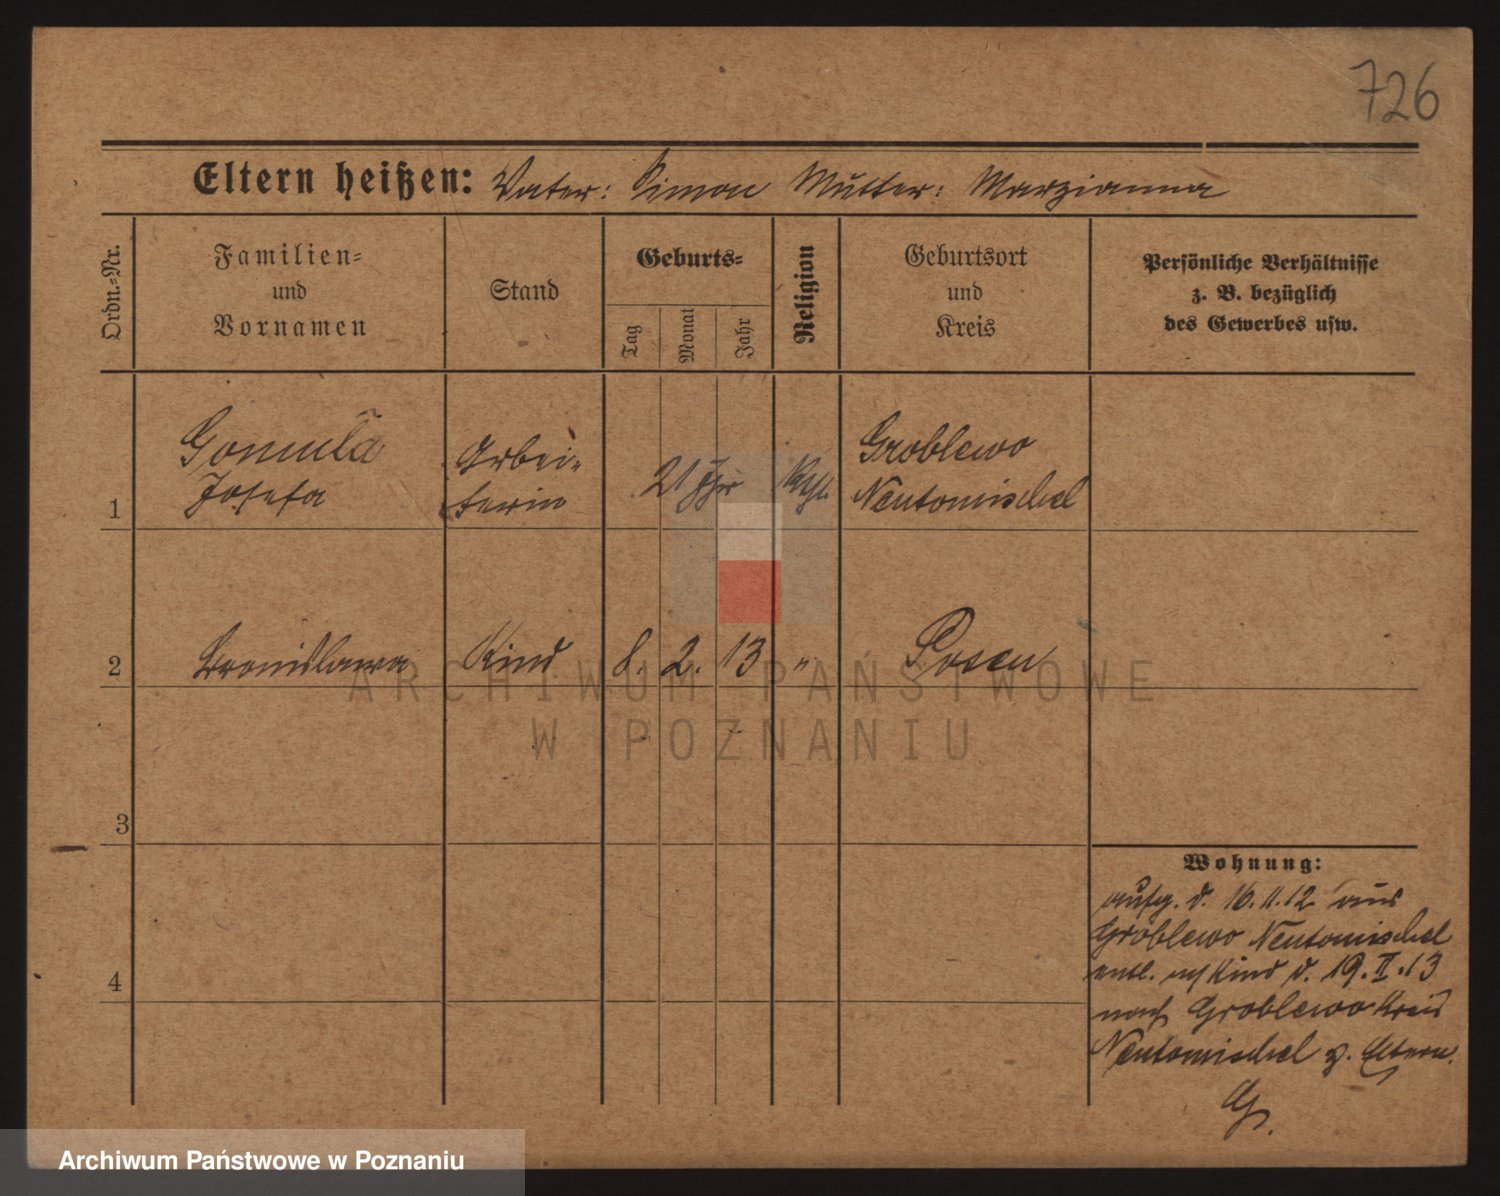 726
Eltern heißen: Vater: Simon Mutter: Marzianna
Ordn.-Nr.
Familien-
und
Vornamen
Stand
Geburts-
Tag
Monat
Jahr
Religion
Geburtsort
und
Kreis
Persönliche Verhältnisse
z. B. bezüglich
des Gewerbes usw.
1
Gomula
Josefa
Arbei-
terin
21 Jhr
Kth.
Groblewo
Neutomischel
2
Bronislawa
Kind
8.
2.
13
"
Posen
ARCHIWUM PAŃSTWOWE
W POZNANIU
3
4
Wohnung:
aufg. d. 16.11.12 aus
Groblewo Neutomischel
entl. Kind d. 19.II.13
nach Groblewo Kreis
Neutomischel z. Eltern.
G.
Archiwum Państwowe w Poznaniu